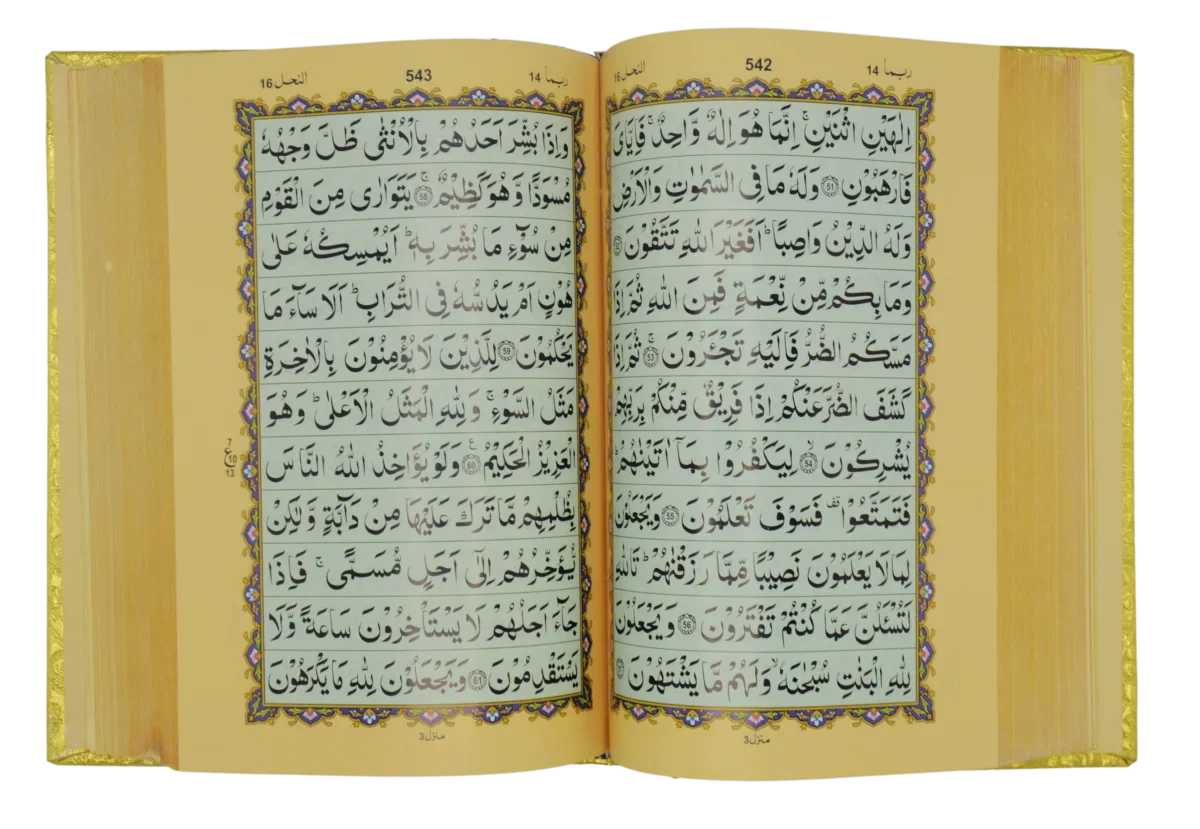 ربما ١٤ 542 النحل ١٦
اِلٰهَيْنِ اثْنَيْنِ ۚ اِنَّمَا هُوَ اِلٰهٌ وَّاحِدٌ ۚ فَاِيَّايَ
فَارْهَبُوْنِ 51 وَلَهٗ مَا فِي السَّمٰوٰتِ وَالْاَرْضِ
وَلَهُ الدِّيْنُ وَاصِبًا ؕ اَفَغَيْرَ اللّٰهِ تَتَّقُوْنَ 52
وَمَا بِكُمْ مِّنْ نِّعْمَةٍ فَمِنَ اللّٰهِ ثُمَّ اِذَا
مَسَّكُمُ الضُّرُّ فَاِلَيْهِ تَجْـَٔرُوْنَ ۚ 53 ثُمَّ اِذَا
كَشَفَ الضُّرَّ عَنْكُمْ اِذَا فَرِيْقٌ مِّنْكُمْ بِرَبِّهِمْ
يُشْرِكُوْنَ ۙ 54 لِيَكْفُرُوْا بِمَاۤ اٰتَيْنٰهُمْ ؕ
فَتَمَتَّعُوْا ۫ فَسَوْفَ تَعْلَمُوْنَ 55 وَيَجْعَلُوْنَ
لِمَا لَا يَعْلَمُوْنَ نَصِيْبًا مِّمَّا رَزَقْنٰهُمْ ؕ تَاللّٰهِ
لَتُسْـَٔلُنَّ عَمَّا كُنْتُمْ تَفْتَرُوْنَ 56 وَيَجْعَلُوْنَ
لِلّٰهِ الْبَنٰتِ سُبْحٰنَهٗ ۙ وَلَهُمْ مَّا يَشْتَهُوْنَ 57
منزل 3
ربما 14 543 النحل 16
وَاِذَا بُشِّرَ اَحَدُهُمْ بِالْاُنْثٰى ظَلَّ وَجْهُهٗ
مُسْوَدًّا وَّهُوَ كَظِيْمٌ ۚ 58 يَتَوَارٰى مِنَ الْقَوْمِ
مِنْ سُوْٓءِ مَا بُشِّرَ بِهٖ ؕ اَيُمْسِكُهٗ عَلٰى
هُوْنٍ اَمْ يَدُسُّهٗ فِي التُّرَابِ ؕ اَلَا سَآءَ مَا
يَحْكُمُوْنَ 59 لِلَّذِيْنَ لَا يُؤْمِنُوْنَ بِالْاٰخِرَةِ
مَثَلُ السَّوْءِ ۚ وَلِلّٰهِ الْمَثَلُ الْاَعْلٰى ؕ وَهُوَ
الْعَزِيْزُ الْحَكِيْمُ 60 ع وَلَوْ يُؤَاخِذُ اللّٰهُ النَّاسَ
7 ع 10 13
بِظُلْمِهِمْ مَّا تَرَكَ عَلَيْهَا مِنْ دَآبَّةٍ وَّلٰكِنْ
يُّؤَخِّرُهُمْ اِلٰۤى اَجَلٍ مُّسَمًّى ۚ فَاِذَا
جَآءَ اَجَلُهُمْ لَا يَسْتَاْخِرُوْنَ سَاعَةً وَّلَا
يَسْتَقْدِمُوْنَ 61 وَيَجْعَلُوْنَ لِلّٰهِ مَا يَكْرَهُوْنَ
منزل 3